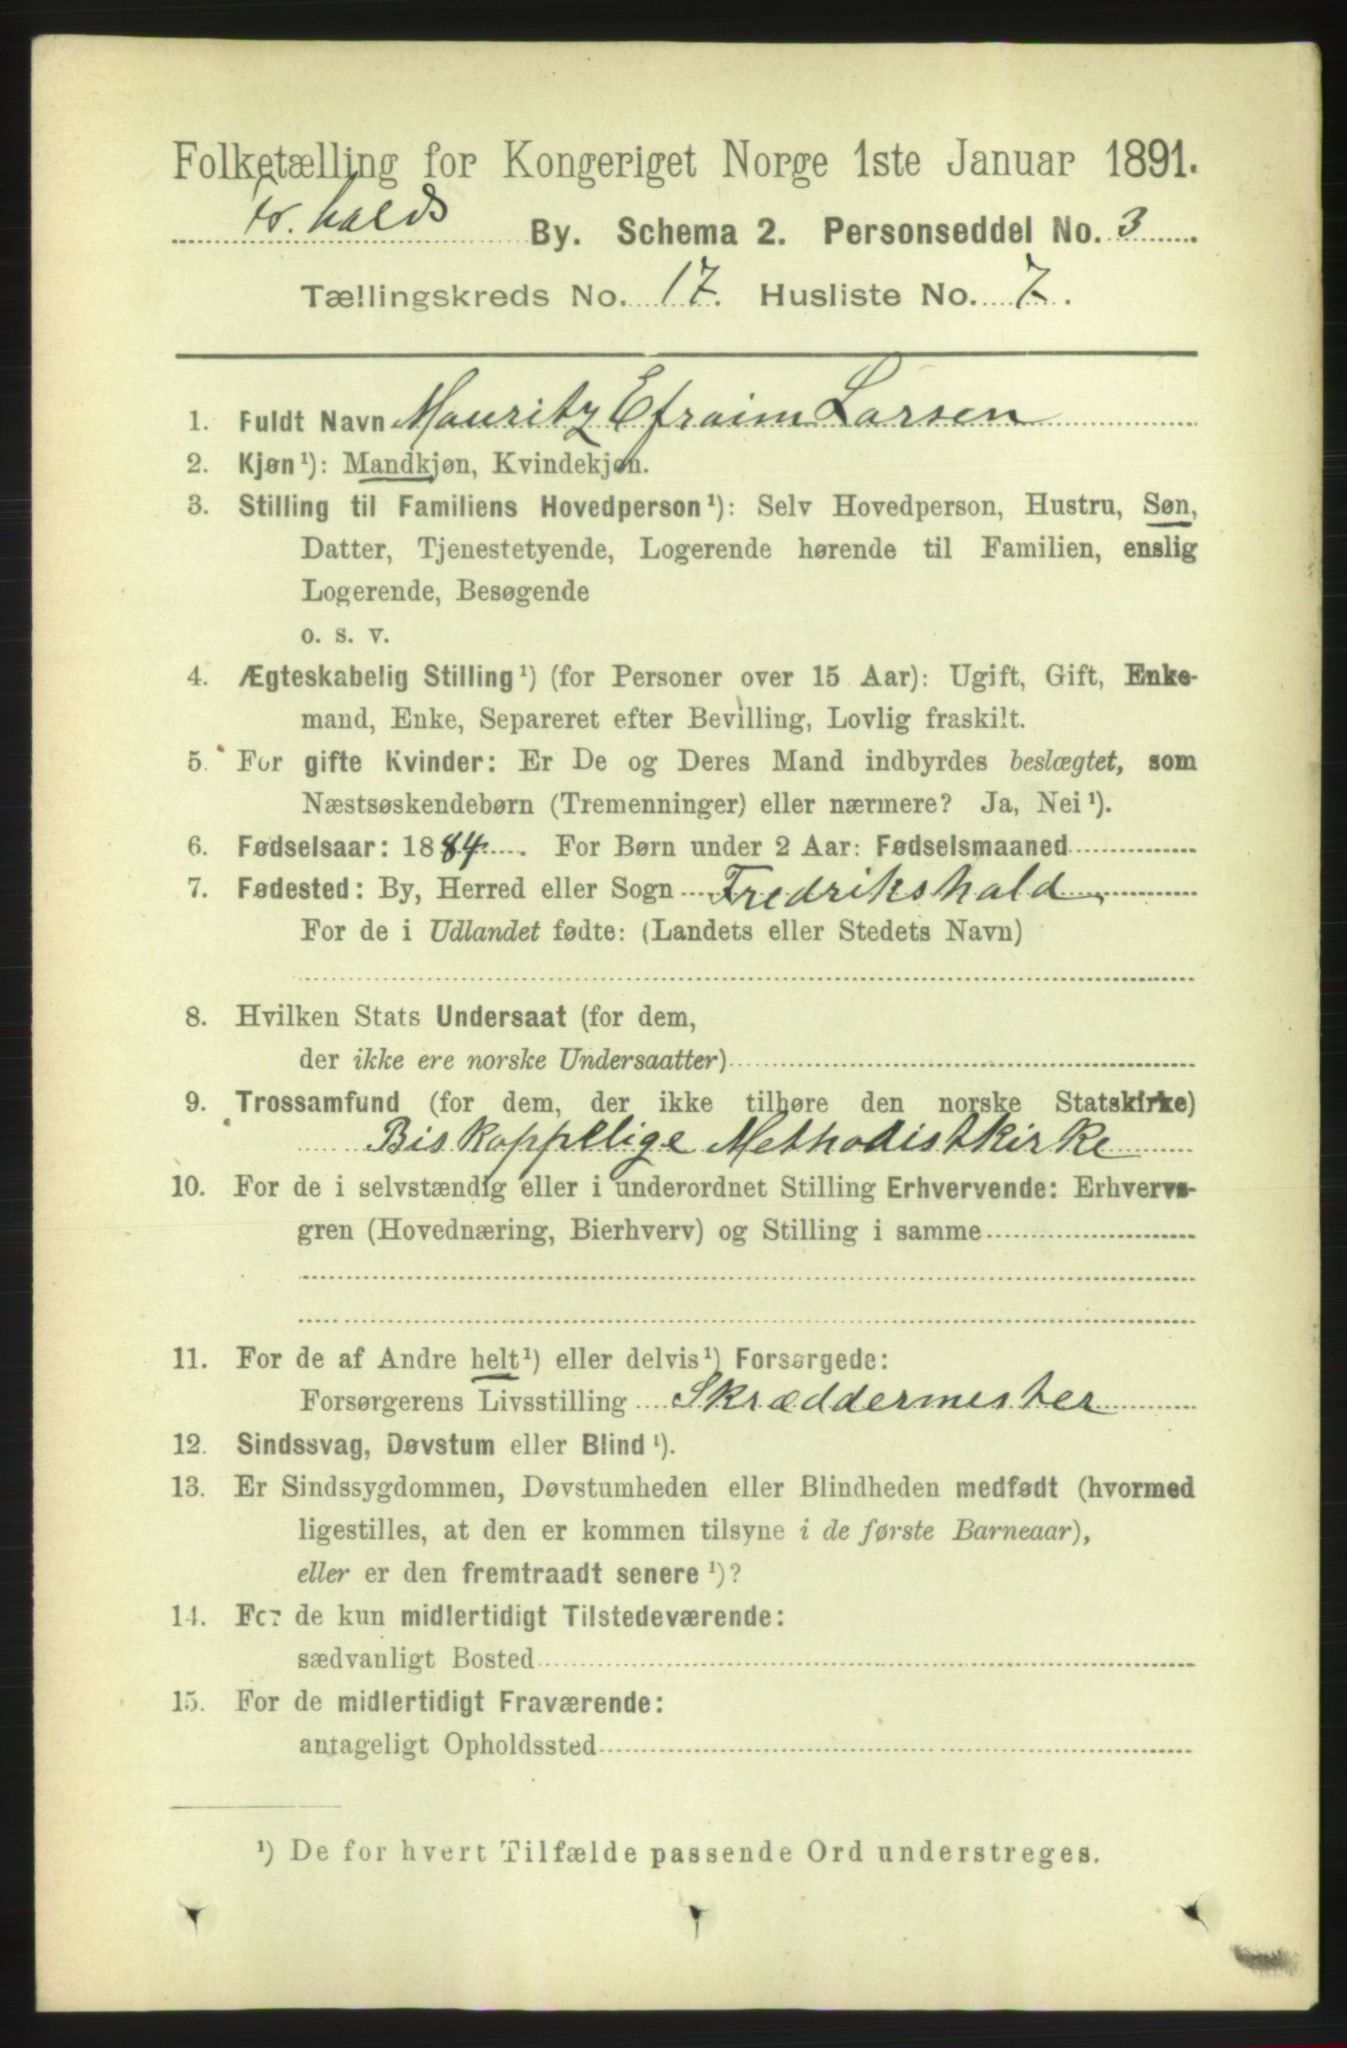 Folketælling for Kongeriget Norge 1ste Januar 1891.
Fr. halds By. Schema 2. Personseddel No. 3
Tællingskreds No. 17. Husliste No. 7.
1. Fuldt Navn Mauritz Efraim Larsen
2. Kjøn¹): Mandkjøn, Kvindekjøn.
3. Stilling til Familiens Hovedperson¹): Selv Hovedperson, Hustru, Søn,
Datter, Tjenestetyende, Logerende hørende til Familien, enslig
Logerende, Besøgende
o. s. v.
4. Ægteskabelig Stilling¹) (for Personer over 15 Aar): Ugift, Gift, Enke-
mand, Enke, Separeret efter Bevilling, Lovlig fraskilt.
5. For gifte Kvinder: Er De og Deres Mand indbyrdes beslægtet, som
Næstsøskendebørn (Tremenninger) eller nærmere? Ja, Nei¹).
6. Fødselsaar: 1884. For Børn under 2 Aar: Fødselsmaaned
7. Fødested: By, Herred eller Sogn Fredrikshald
For de i Udlandet fødte: (Landets eller Stedets Navn)
8. Hvilken Stats Undersaat (for dem,
der ikke ere norske Undersaatter)
9. Trossamfund (for dem, der ikke tilhøre den norske Statskirke)
Biskoppelige Methodistkirke
10. For de i selvstændig eller i underordnet Stilling Erhvervende: Erhvervs-
gren (Hovednæring, Bierhverv) og Stilling i samme
11. For de af Andre helt¹) eller delvis¹) Forsørgede:
Forsørgerens Livsstilling Skræddermester
12. Sindssvag, Døvstum eller Blind¹).
13. Er Sindssygdommen, Døvstumheden eller Blindheden medfødt (hvormed
ligestilles, at den er kommen tilsyne i de første Barneaar),
eller er den fremtraadt senere¹)?
14. For de kun midlertidigt Tilstedeværende:
sædvanligt Bosted
15. For de midlertidigt Fraværende:
antageligt Opholdssted
¹) De for hvert Tilfælde passende Ord understreges.